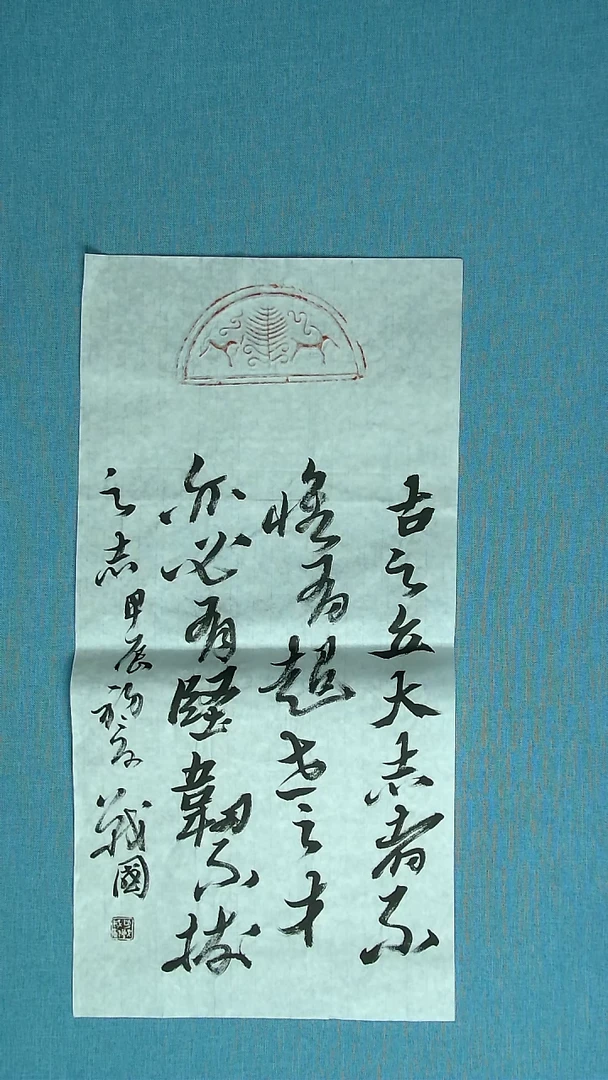 古之立大志者不
惟有超世之才
亦必有堅韌不拔
之志 甲辰初夏 戰國